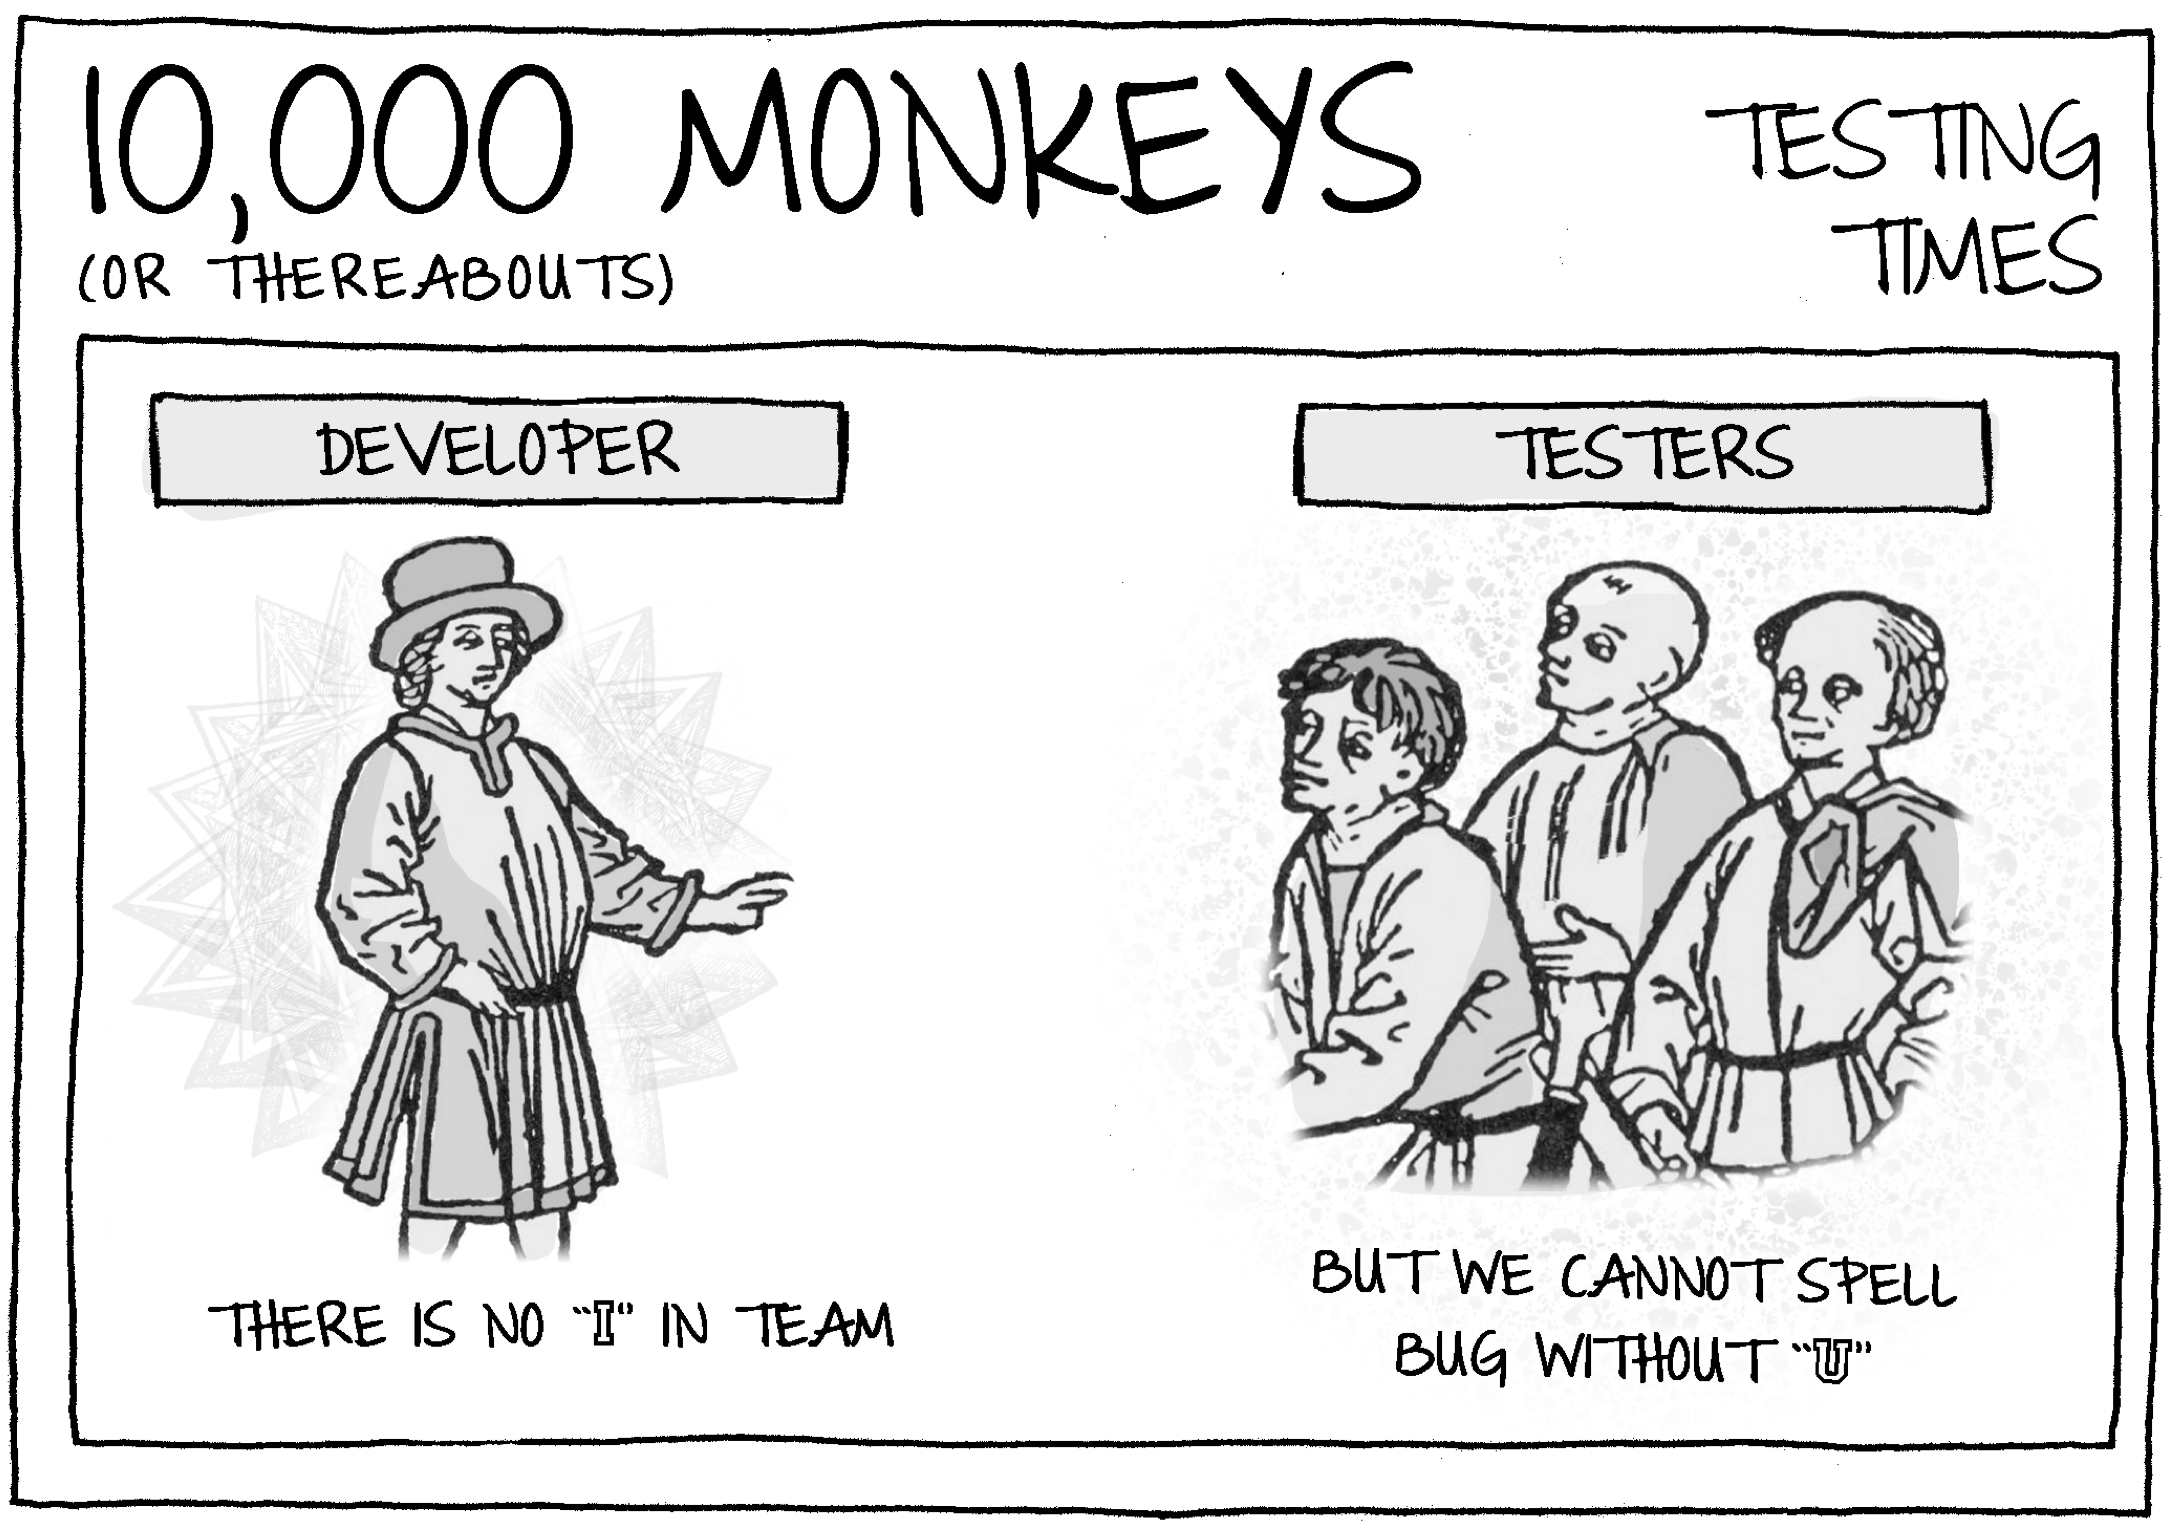 10,000 MONKEYS
(OR THEREABOUTS)
TESTING
TIMES
DEVELOPER
THERE IS NO "I" IN TEAM
TESTERS
BUT WE CANNOT SPELL
BUG WITHOUT "U"